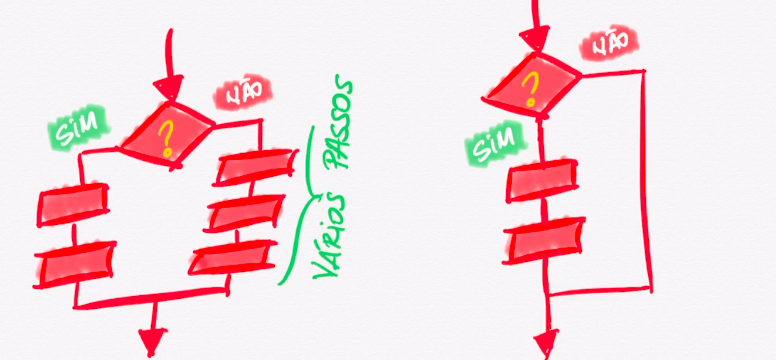 SIM
?
NÃO
VÁRIOS PASSOS
?
NÃO
SIM